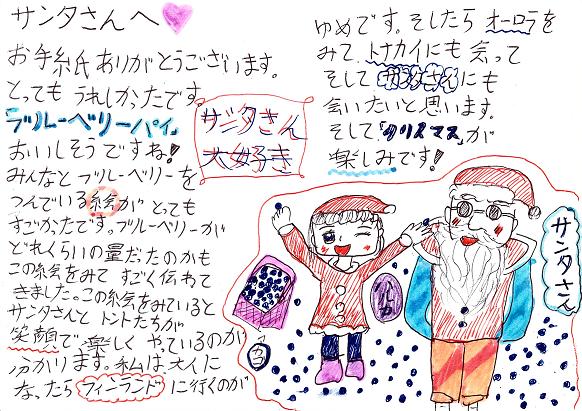 サンタさんへ
お手紙ありがとうございます。
とってもうれしかったです。
「ブルーベリーパイ」
おいしそうですね!
みんなとブルーベリーを
つんでいる絵がとっても
すごかったです。ブルーベリーが
どれくらいの量だたのかも
この絵をみてすごく伝わて
きました。この絵をみていると
サンタさんとトントたちが
笑顔で楽しくやっているのが
分かります。私は大人に
なったらフィーランドに行くのが
サンタさん
大好き
ゆめです。そしたらオーロラを
みて、トナカイにも会って
そしてサンタさんにも
会いたいと思います。
そして「クリスマス」が
楽しみです!
サンタさん